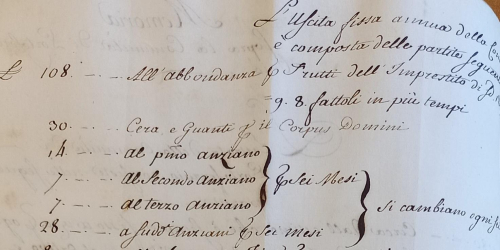 L'Uscita fissa annua della Com
è composta delle partite seguen
£ 108. - - All'abbondanza p Frutti dell'Imprestito di
g. 8. fattoli in più tempi
30. - - - Cera e Guanti p il Corpus Domini
14. - - - Al pmo anziano
7. - - - al Secondo Anziano p Sei Mesi
7. - - - al terzo Anziano si cambiano ogni
28. - - - a sudd. Anziani p Sei mesi